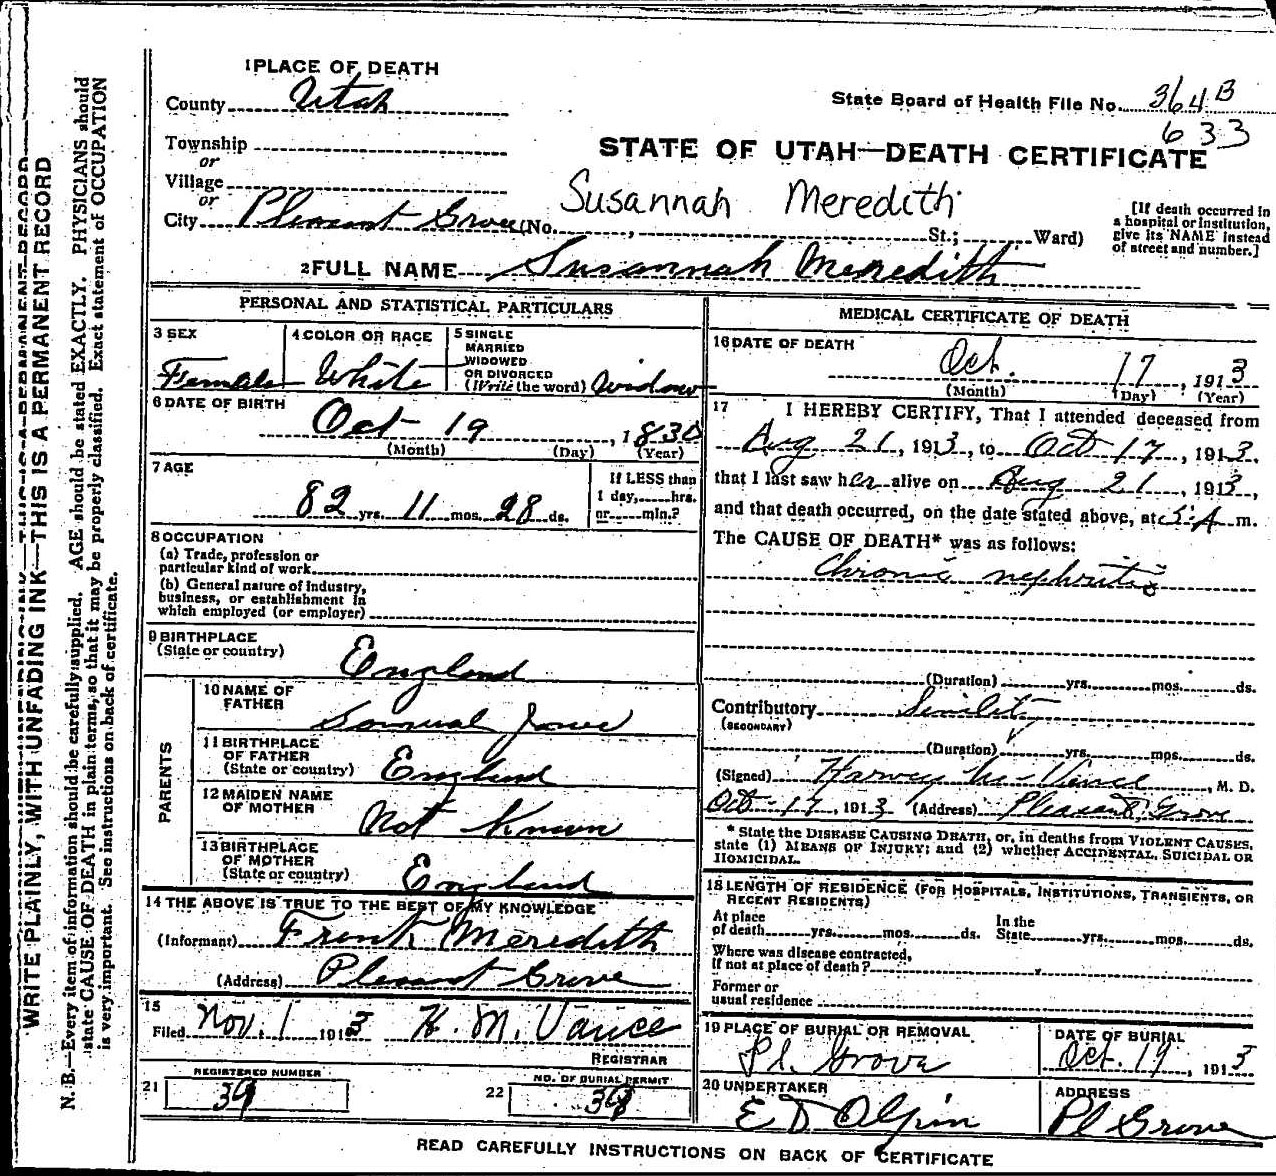 WRITE PLAINLY, WITH UNFADING INK—THIS IS A PERMANENT RECORD
N. B.—Every item of information should be carefully supplied. AGE should be stated EXACTLY. PHYSICIANS should
state CAUSE OF DEATH in plain terms, so that it may be properly classified. Exact statement of OCCUPATION
is very important. See instructions on back of certificate.
1 PLACE OF DEATH
County Utah
State Board of Health File No. 364 B
633
Township
or
Village
or
City Pleasant Grove (No. , St.; Ward)
STATE OF UTAH—DEATH CERTIFICATE
Susannah Meredith
[If death occurred in
a hospital or institution,
give its NAME instead
of street and number.]
2 FULL NAME Susannah Meredith
PERSONAL AND STATISTICAL PARTICULARS
3 SEX
Female
4 COLOR OR RACE
White
5 SINGLE
MARRIED
WIDOWED
OR DIVORCED
(Write the word) Widow
6 DATE OF BIRTH
Oct 19, 1830
(Month) (Day) (Year)
7 AGE
82 yrs. 11 mos. 28 ds.
If LESS than
1 day, hrs.
or min.?
8 OCCUPATION
(a) Trade, profession or
particular kind of work
(b) General nature of industry,
business, or establishment in
which employed (or employer)
9 BIRTHPLACE
(State or country)
England
PARENTS
10 NAME OF
FATHER
Samual Jones
11 BIRTHPLACE
OF FATHER
(State or country) England
12 MAIDEN NAME
OF MOTHER
Not Known
13 BIRTHPLACE
OF MOTHER
(State or country) England
14 THE ABOVE IS TRUE TO THE BEST OF MY KNOWLEDGE
(Informant) Frank Meredith
(Address) Pleasant Grove
15
Filed Nov. 1 1913 H. M. Vance
REGISTRAR
21 REGISTERED NUMBER
39
22 NO. OF BURIAL PERMIT
MEDICAL CERTIFICATE OF DEATH
16 DATE OF DEATH
Oct. 17, 1913
(Month) (Day) (Year)
17 I HEREBY CERTIFY, That I attended deceased from
Aug 21, 1913, to Oct 17, 1913,
that I last saw her alive on Aug 21, 1913,
and that death occurred, on the date stated above, at 5 A m.
The CAUSE OF DEATH* was as follows:
Chronic nephritis
(Duration) yrs. mos. ds.
Contributory Senility
(SECONDARY)
(Duration) yrs. mos. ds.
(Signed) Harvey M. Vance, M. D.
Oct 17, 1913 (Address) Pleasant Grove
* State the DISEASE CAUSING DEATH, or, in deaths from VIOLENT CAUSES,
state (1) MEANS OF INJURY; and (2) whether ACCIDENTAL, SUICIDAL OR
HOMICIDAL.
18 LENGTH OF RESIDENCE (FOR HOSPITALS, INSTITUTIONS, TRANSIENTS, OR
RECENT RESIDENTS)
At place
of death yrs. mos. ds.
In the
State yrs. mos. ds.
Where was disease contracted,
If not at place of death?
Former or
usual residence
19 PLACE OF BURIAL OR REMOVAL
Pl. Grove
DATE OF BURIAL
Oct. 19, 1913
20 UNDERTAKER
E D Olpin
ADDRESS
Pl Grove
READ CAREFULLY INSTRUCTIONS ON BACK OF CERTIFICATE